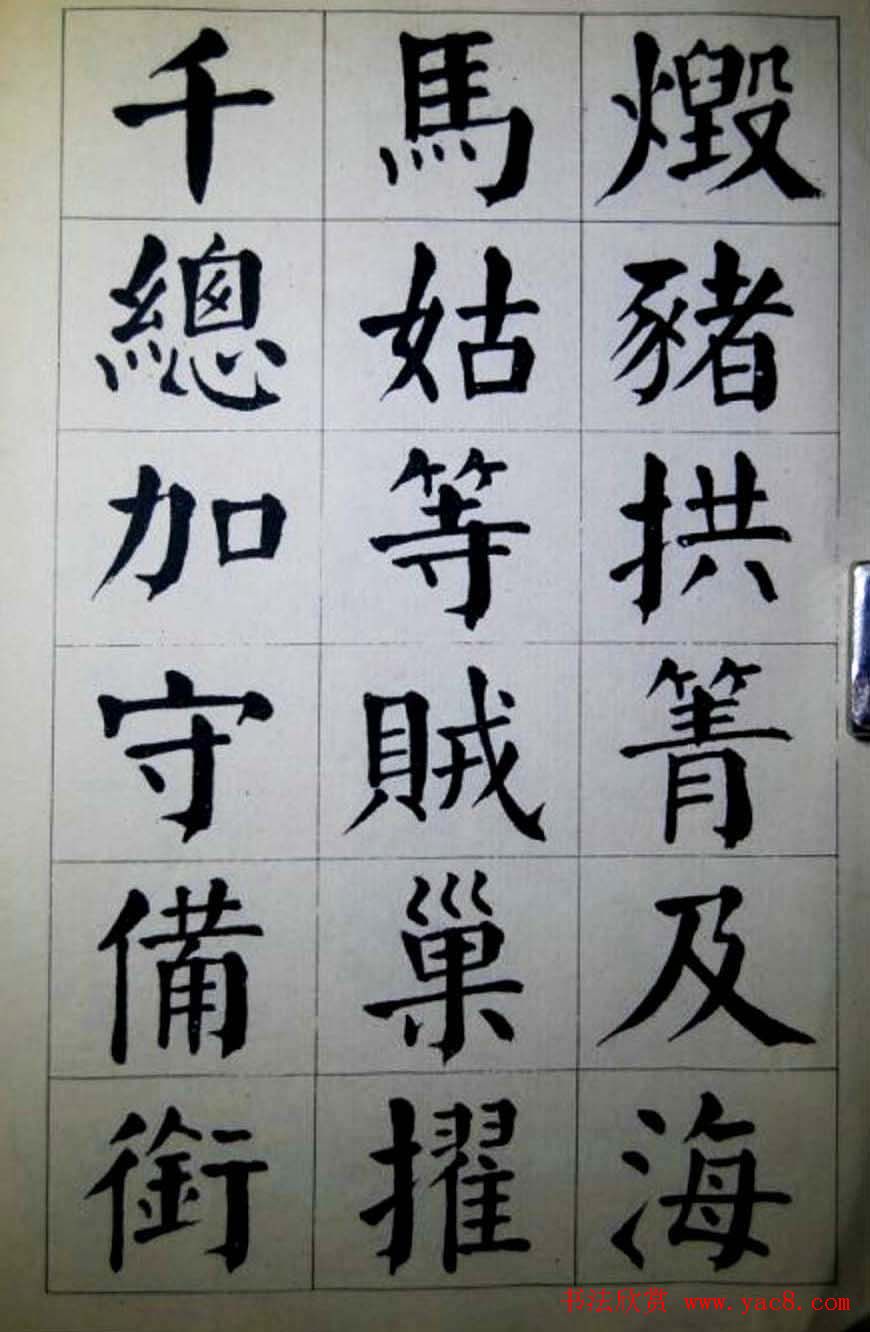 燬豬拱箐及海
馬姑等賊巢擢
千總加守備銜
书法欣赏 www.yac8.com